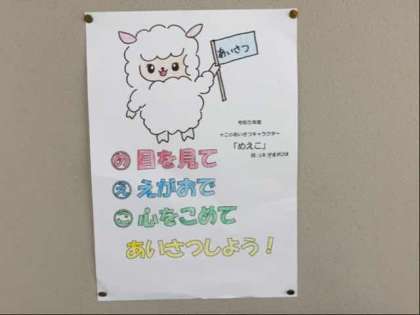 あいさつ
令和元年度
あいさつキャラクター
「めえこ」
め 目を見て
え えがおで
こ 心をこめて
あいさつしよう!